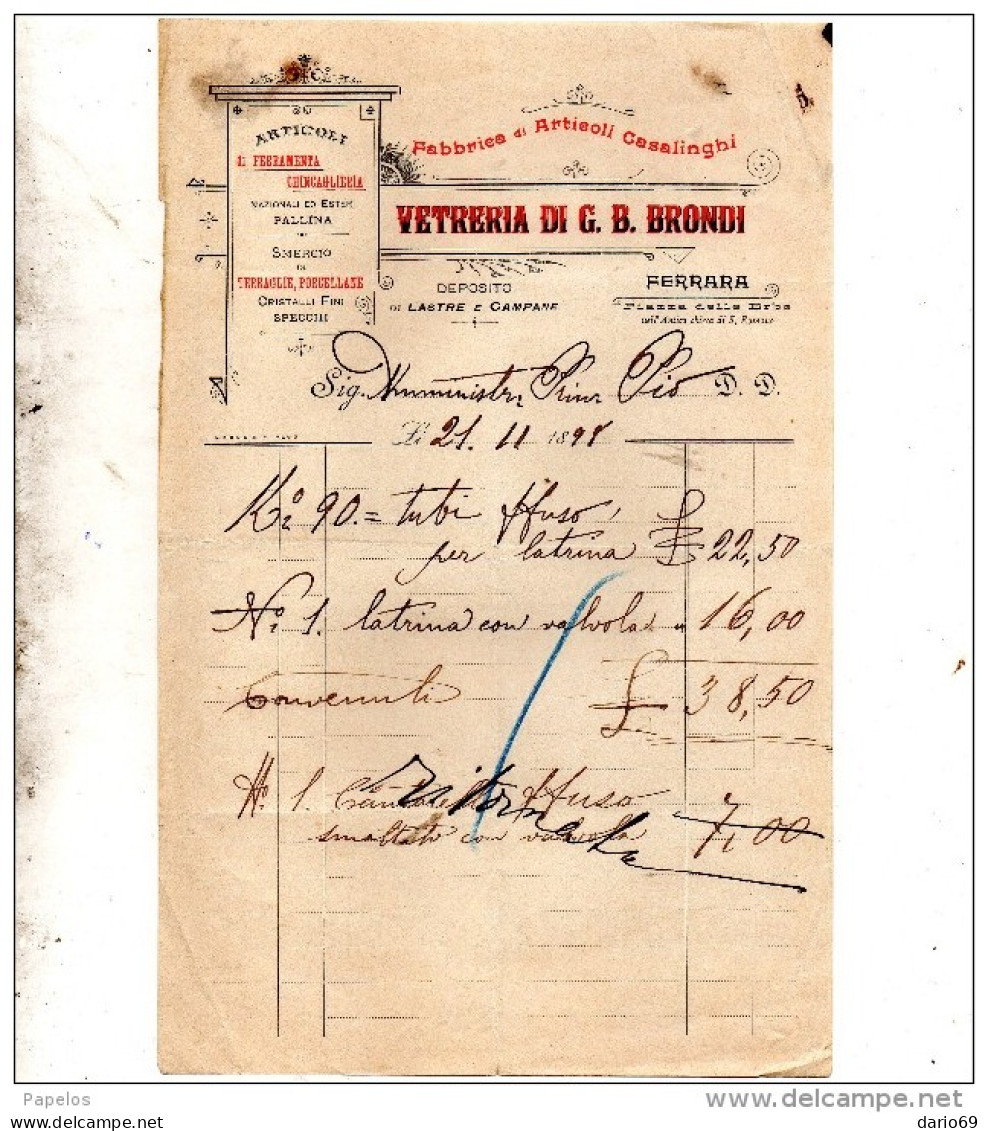 ARTICOLI
di FERRAMENTA
CHINCAGLIERIA
NAZIONALI ED ESTERI
PALLINA
SMERCIO
DI
TERRAGLIE, PORCELLANE
CRISTALLI FINI
SPECCHI
Fabbrica di Articoli Casalinghi
VETRERIA DI G. B. BRONDI
DEPOSITO
DI LASTRE E CAMPANE
FERRARA
Piazza delle Erbe
nell'Antica chiesa di S.
Sig. Amministr. Prin. Pio D. D.
Li 21. 11 1898
Ko 90. = tubi ffuso
per latrina £ 22,50
No 1. latrina con valvola " 16,00
Convenuti £ 38,50
No 1. ffuso
smaltato con valvola 7,00
Papelos
www.delcampe.net
dario69